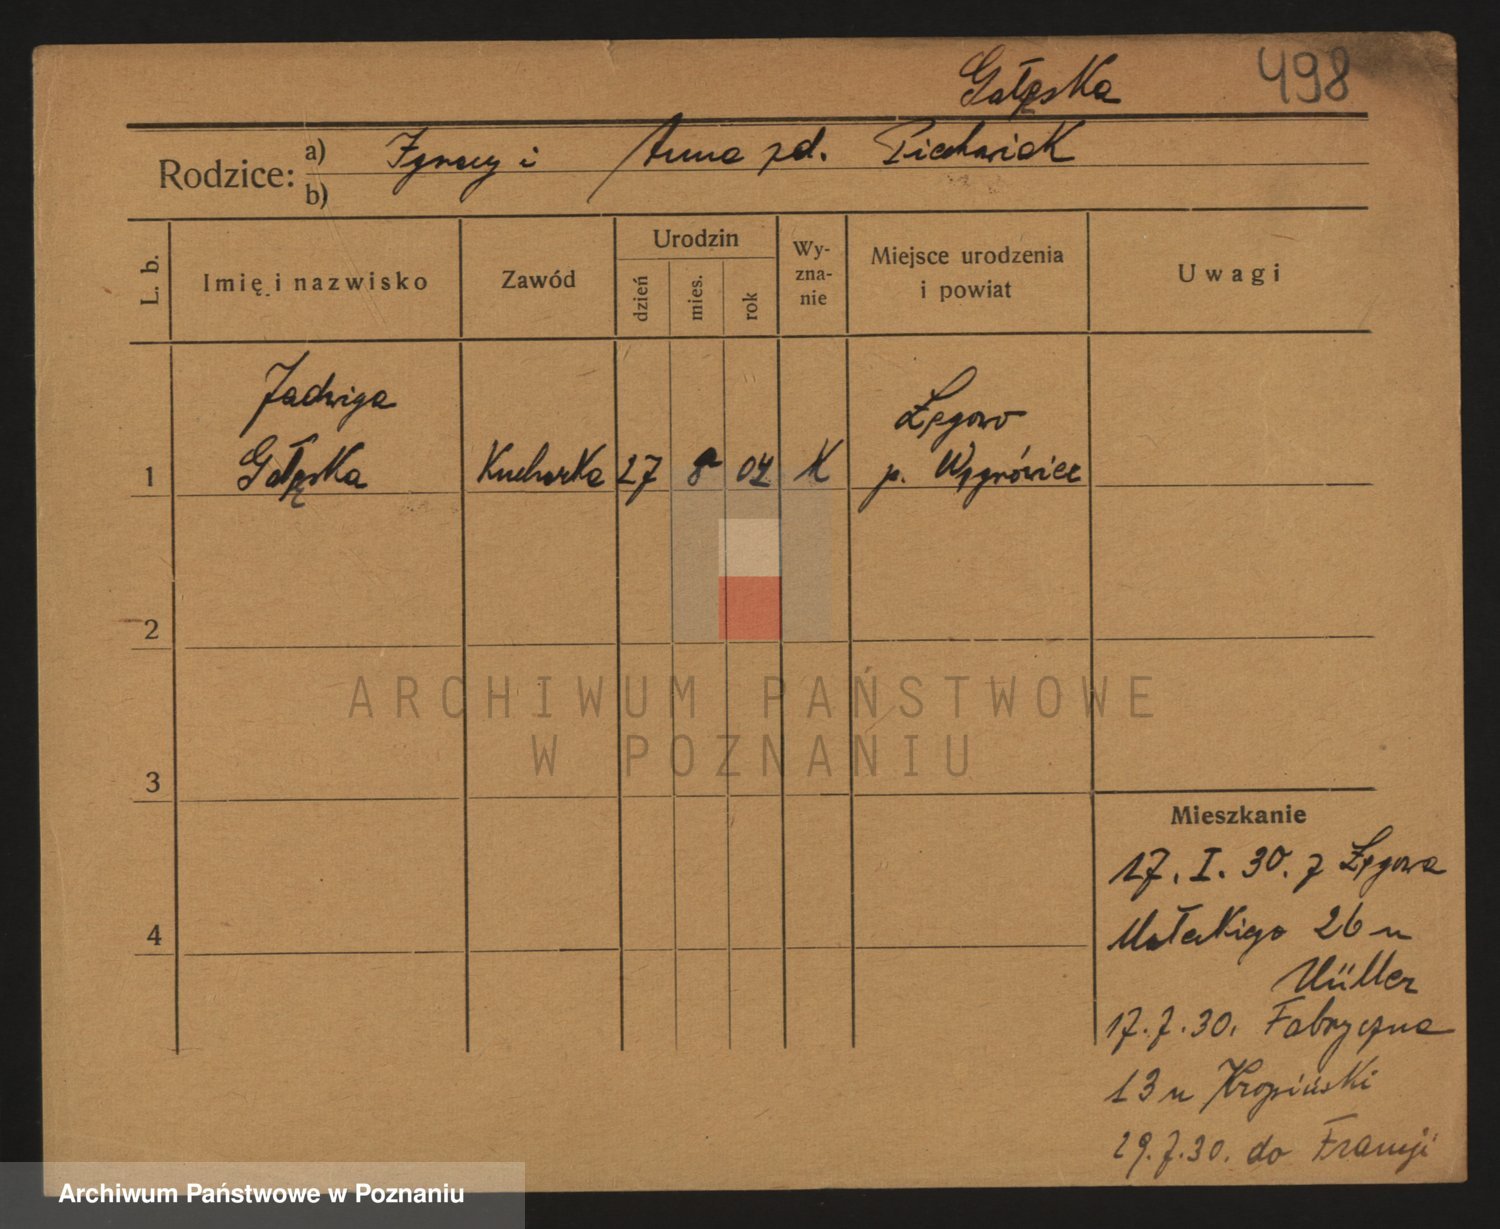 Gałęska 498
Rodzice: a) Ignacy i Anna zd. Piechowiak
b)
L. b. Imię i nazwisko Zawód Urodzin dzień mies. rok Wyznanie Miejsce urodzenia i powiat Uwagi
Jadwiga Łęgowo
1 Gałęska Kucharka 27 8 04 K p. Wągrówiec
2
ARCHIWUM PAŃSTWOWE
W POZNANIU
3
Mieszkanie
17. I. 30. z Łęgowa
4 Małeckiego 26 u
Müller
17.7.30. Fabryczna
13 u Kropiński
29.7.30. do Francji
Archiwum Państwowe w Poznaniu